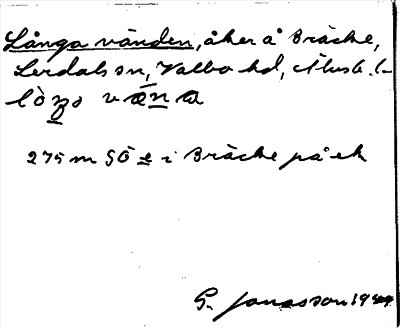 Långa vänden, åker å Bräcke,
Lerdals sn, Valbo hd, Älvsb. l.
lòŋa væna
275 m SÖ e i Bräcke på ek
G. Jonasson 1924